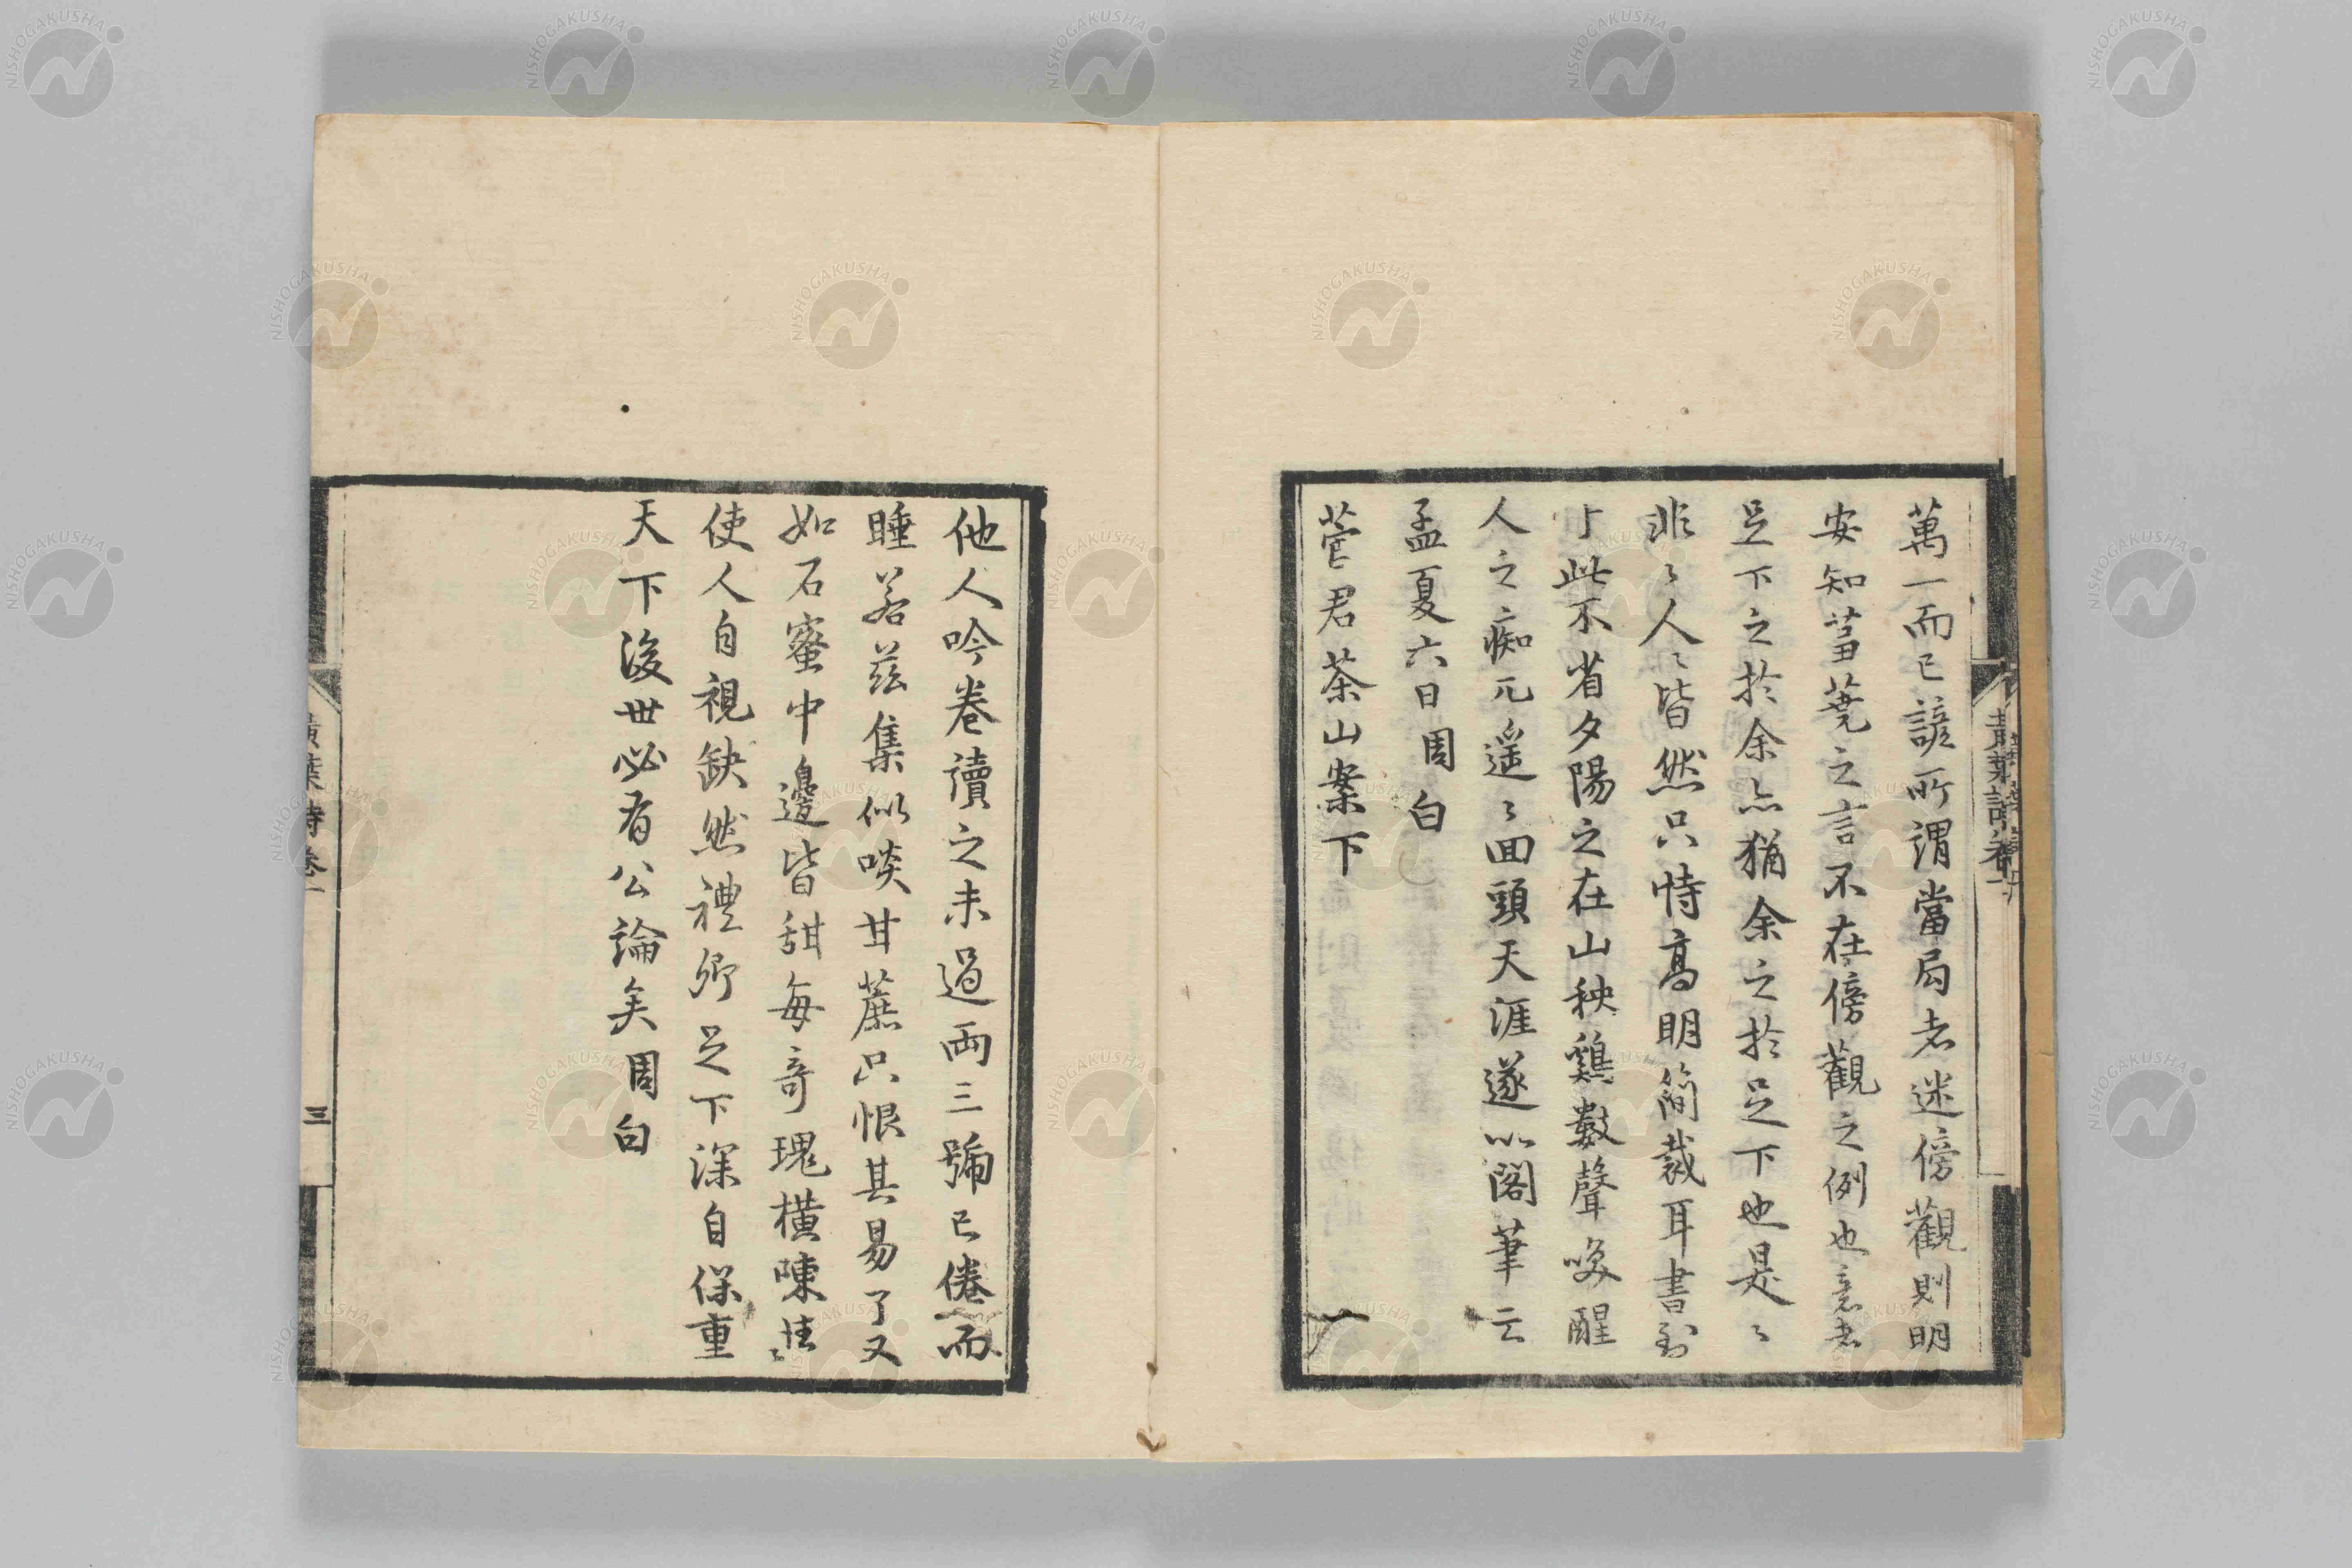 萬一而已諺所謂當局者迷傍觀則明
安知蒭蕘之言不在傍觀之例也意者
足下之於余亦猶余之於足下也是〻
非〻人〻皆然只恃高明簡裁耳書到
于此不省夕陽之在山秧鷄數聲喚醒
人之痴兀遥〻囬頭天涯遂以閣筆云
孟夏六日周白
菅君茶山案下
他人吟卷讀之未過兩三號已倦而
睡若茲集似啖甘蔗只恨其易了又
如石蜜中邊皆甜每奇瑰横陳
使人自視缺然禮卿足下深自保重
天下後世必有公論矣周白
黄葉詩卷一
三
NISHOGAKUSHA